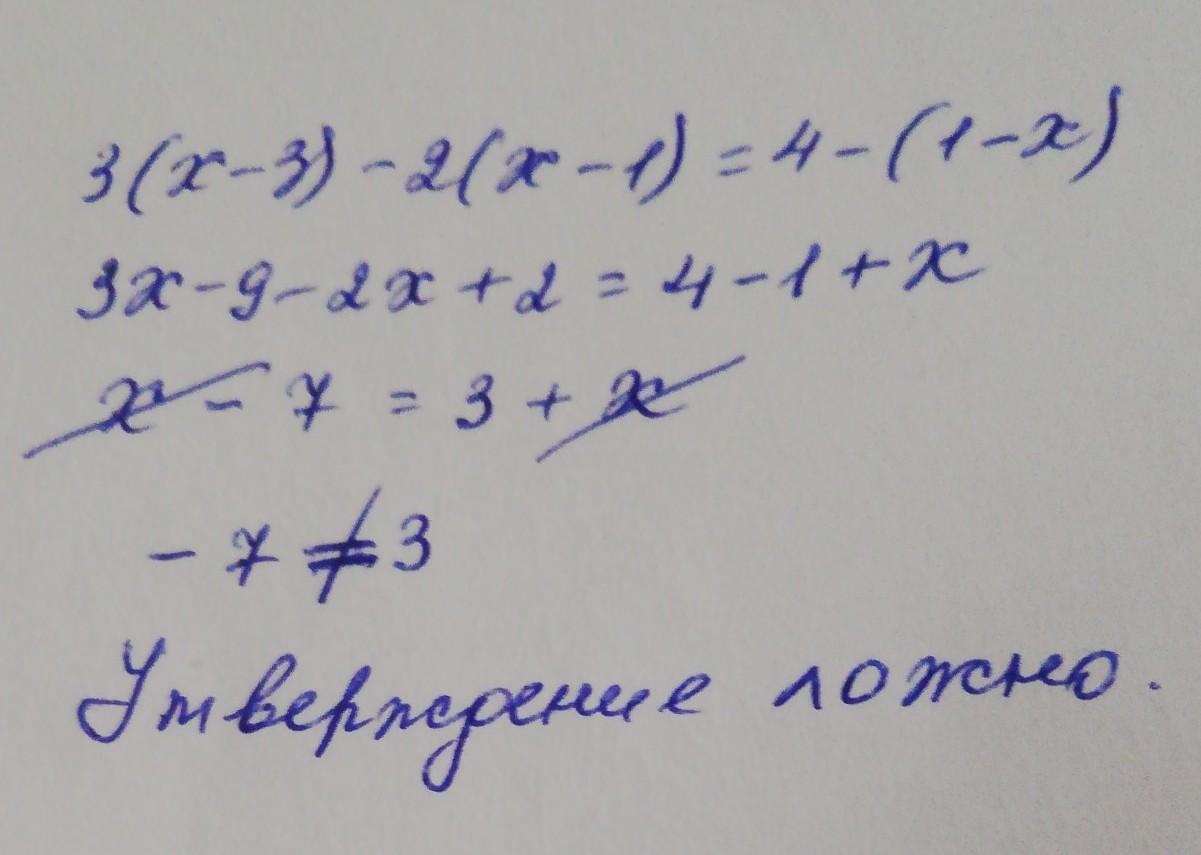 3(x-3)-2(x-1)=4-(1-x)
3x-9-2x+2=4-1+x
x-7=3+x
-7≠3
Утверждение ложно.